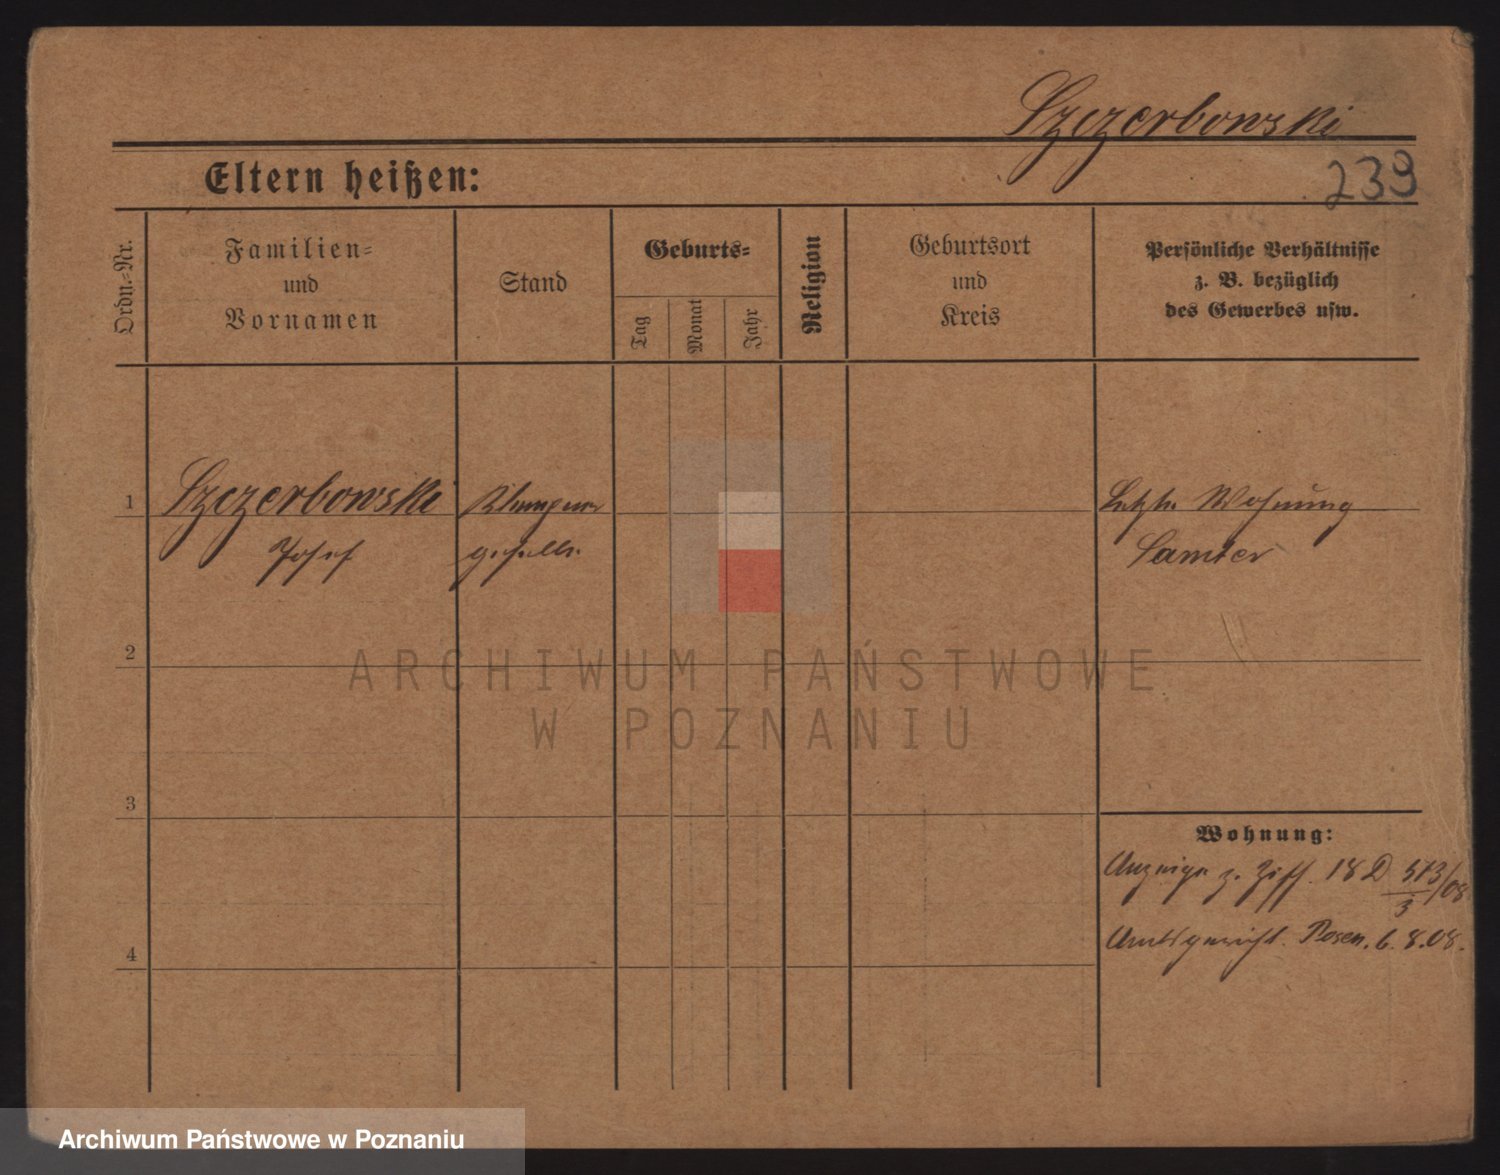 Szczerbowski
239
Eltern heißen:
Ordn.-Nr.
Familien-
und
Vornamen
Stand
Geburts-
Tag
Monat
Jahr
Religion
Geburtsort
und
Kreis
Persönliche Verhältnisse
z. B. bezüglich
des Gewerbes usw.
1
Szczerbowski
Josef
Klempner
geselle
Letzte Wohnung
Samter
2
ARCHIWUM PAŃSTWOWE
W POZNANIU
3
Wohnung:
Anzeige z. Ziff. 18 D 573/08
3
Amtsgericht Posen. 6. 8. 08.
4
Archiwum Państwowe w Poznaniu